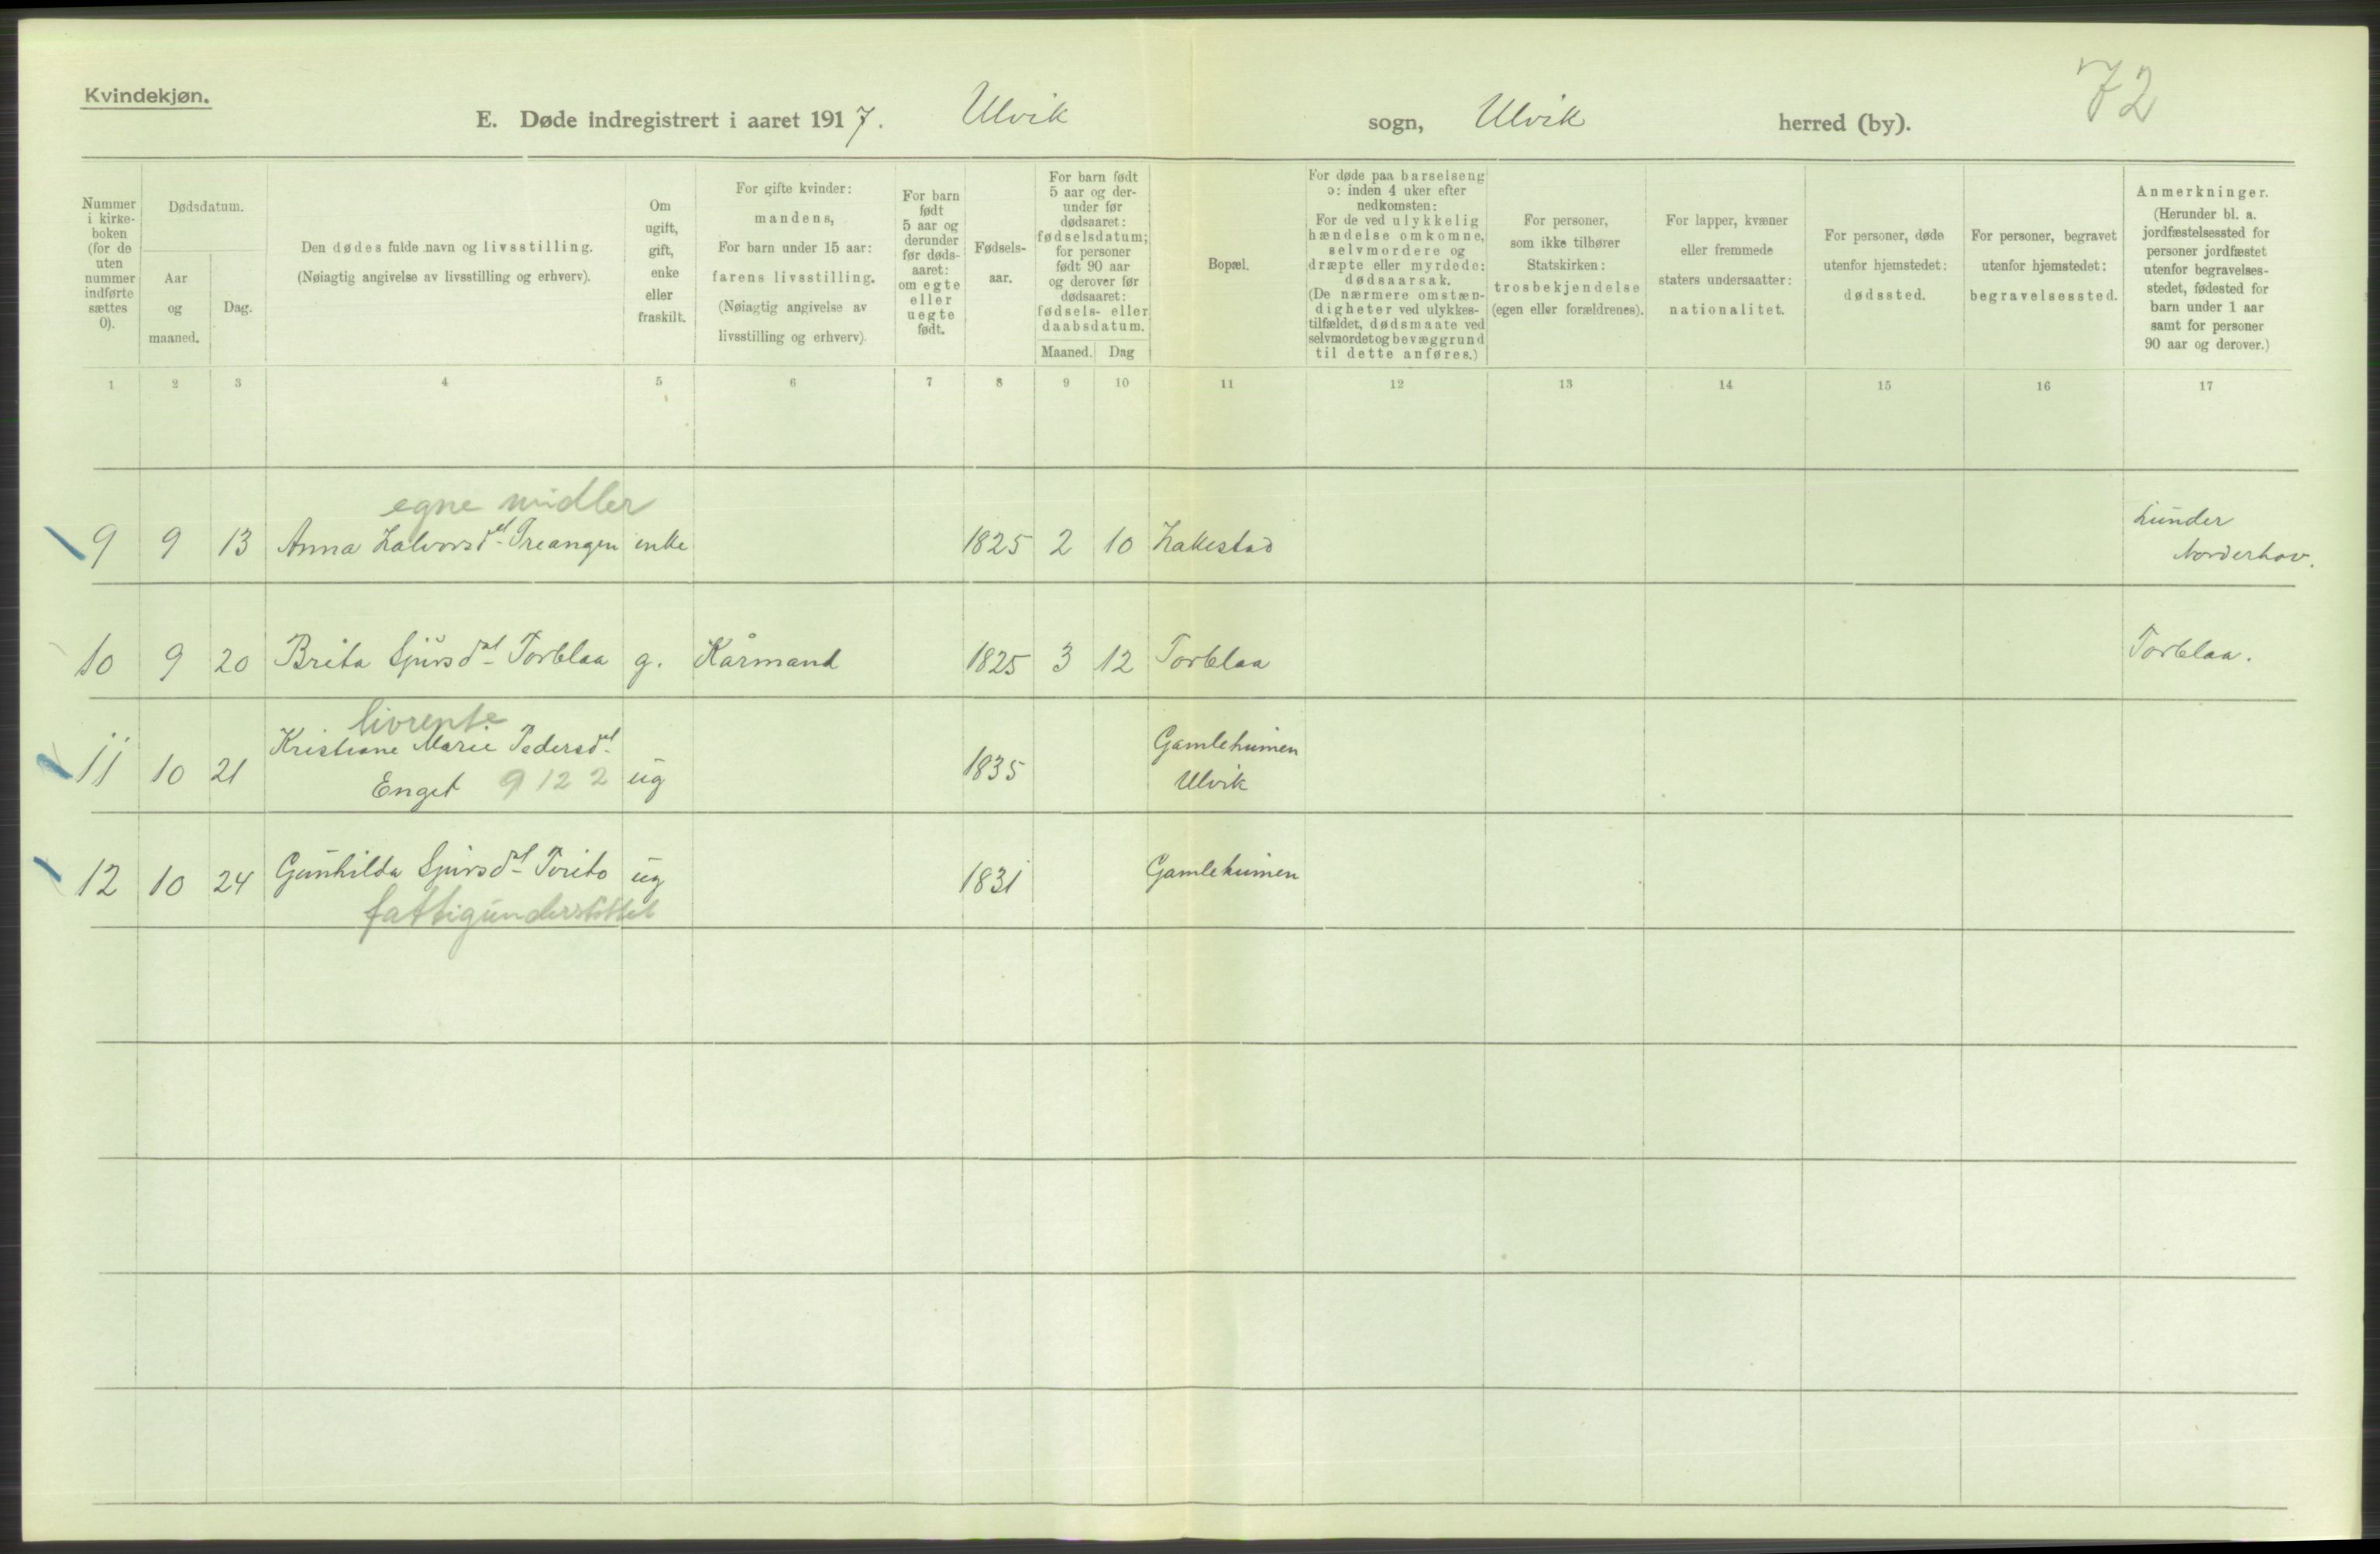 Kvindekjøn.
72
E. Døde indregistrert i aaret 1917. Ulvik sogn, Ulvik herred (by).
Nummer i kirke- boken (for de uten nummer indførte sættes 0).
Dødsdatum.
Aar og maaned.
Dag.
Den dødes fulde navn og livsstilling.
(Nøiagtig angivelse av livsstilling og erhverv).
Om ugift, gift, enke eller fraskilt.
For gifte kvinder:
mandens,
For barn under 15 aar:
farens livsstilling.
(Nøiagtig angivelse av
livsstilling og erhverv)
For barn født 5 aar og derunder før døds- aaret: om egte eller uegte født.
Fødsels- aar.
For barn født 5 aar og der- under før dødsaaret: fødselsdatum; for personer født 90 aar og derover før dødsaaret: fødsels- eller daabsdatum.
Maaned. Dag
Bopæl.
For døde paa barselseng ɔ: inden 4 uker efter nedkomsten: For de ved ulykkelig hændelse omkomne, selvmordere og dræpte eller myrdede: dødsaarsak. (De nærmere omstæn- digheter ved ulykkes- tilfældet, dødsmaate ved selvmordet og bevæggrund til dette anføres.)
For personer, som ikke tilhører Statskirken: trosbekjendelse (egen eller forældrenes).
For lapper, kvæner eller fremmede staters undersaatter: nationalitet.
For personer, døde utenfor hjemstedet: dødssted.
For personer, begravet utenfor hjemstedet: begravelsessted.
Anmerkninger.
(Herunder bl. a. jordfæstelsessted for personer jordfæstet utenfor begravelses- stedet, fødested for barn under 1 aar samt for personer 90 aar og derover.)
1 2 3 4 5 6 7 8 9 10 11 12 13 14 15 16 17
egne midler
9 9 13 Anna Halvorsdtl Treangen enke 1825 2 10 Hakestad Lunder
Norderhov.
10 9 20 Brita Sjursdtl Torblaa g. Kårmand 1825 3 12 Torblaa Torblaa.
livrente
11 10 21 Kristiane Marie Pedersdtl ug 1835 Gamleheimen
Enget 9 12 2 Ulvik
12 10 24 Gunhilda Sjursdtl ug 1831 Gamleheimen
fattigunderstøttet